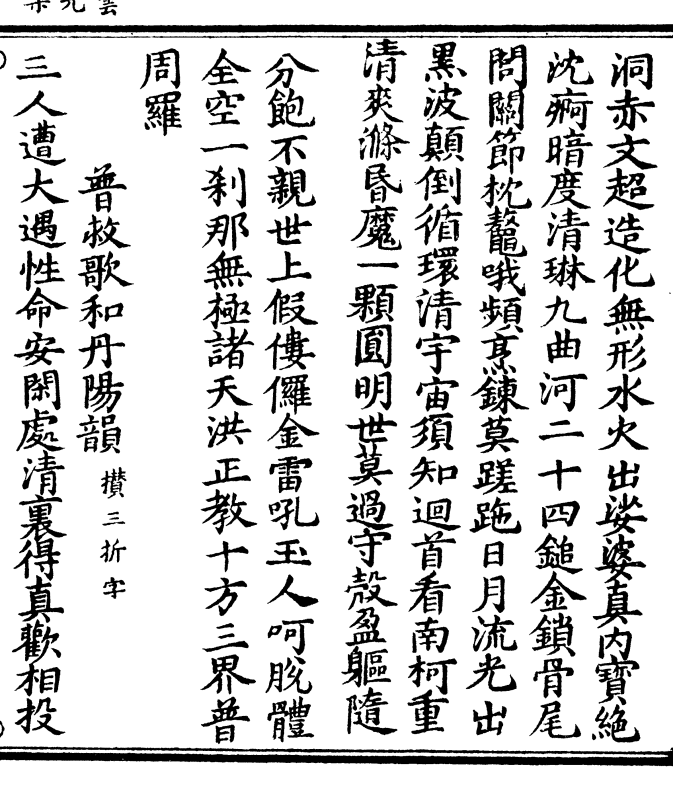 洞赤文超造化無形水火出娑婆真内寶絶
沈痾暗度清琳九曲河二十四鎚金鎖骨尾
閭關節枕鼇哦頻烹鍊莫蹉跎日月流光出
黑波顛倒循環清宇宙須知迴首看南柯重
清爽滌昏魔一顆圓明世莫過守殼盈軀隨
分飽不親世上假僂儸金雷吼玉人呵脫體
全空一刹那無極諸天洪正教十方三界普
周羅
普救歌和丹陽韻 攅三折字
三人遭大遇性命安閑處清裏得真歡相投